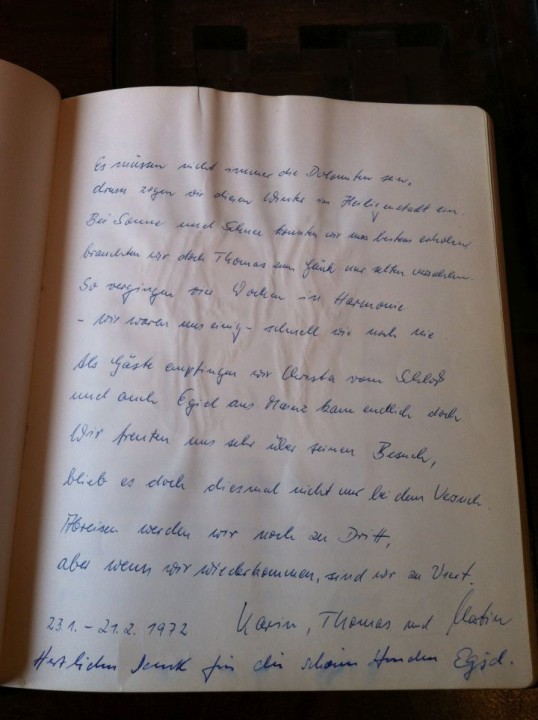 Es müssen nicht immer die Dolomiten sein,
drum zogen wir diesen Winter in Heiligenstadt ein.
Bei Sonne und Schnee konnten wir uns bestens erholen
brauchten wir doch Thomas zum Glück nur selten
So vergingen vier Wochen in Harmonie
- wir waren uns einig - schnell wie noch nie
Als Gäste empfingen wir Christa vom Schloß
und auch Egid aus Mainz kam endlich doch
Wir freuten uns sehr über seinen Besuch,
blieb es doch diesmal nicht nur bei dem Versuch.
Abreisen werden wir noch zu Dritt,
aber wenn wir wiederkommen, sind wir zu Viert.
23.1. - 21.2. 1972 Karin, Thomas und
Herzlichen Dank für die schönen Stunden Egid.